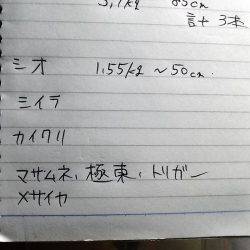 3,7kg 85cm
計 3本
シオ 1.55kg ~50cm.
ミイラ
カイワリ
マサムネ、極東、トリガー
メサイヤ